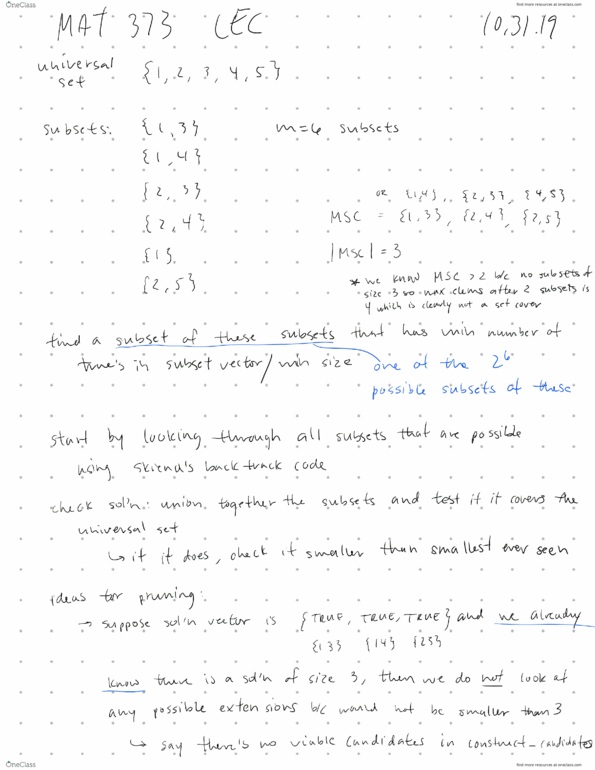 OneClass
find more resources at oneclass.com
MAT 373 LEC 10.31.19
universal set {1, 2, 3, 4, 5}
subsets: {1, 3} m=6 subsets
{1, 4}
{2, 3}
{2, 4}
{1}
{2, 5}
or {1,4}, {2,3}, {4,5}
MSC = {1,3}, {2,4}, {2,5}
|MSC| = 3
* we know MSC > 2 b/c no subsets of
size 3 so max elems after 2 subsets is
4 which is clearly not a set cover
find a subset of these subsets that has min number of
true's in subset vector/min size one of the 2^6
possible subsets of these
start by looking through all subsets that are possible
using skiena's backtrack code
check sol'n: union together the subsets and test if it covers the
universal set
↳ if it does, check if smaller than smallest ever seen
ideas for pruning:
→ suppose sol'n vector is {TRUE, TRUE, TRUE} and we already
{13} {14} {25}
know there is a sol'n of size 3, then we do not look at
any possible extensions b/c would not be smaller than 3
↳ say there's no viable candidates in construct_candidates
OneClass
find more resources at oneclass.com